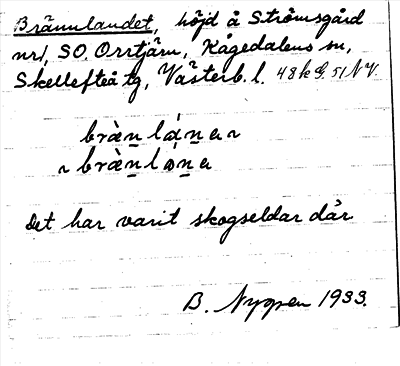 Brännlandet, höjd å Strömsgård
nr 1, SO. Orrtjärn, Kågedalens sn,
Skellefteå tg, Västerb. l. 48k G. 51 NV.
brὰn̲ lá̲n̲ a ~
~ brὰn̲ lan̲ a
Det har varit skogseldar där
B. 1933.